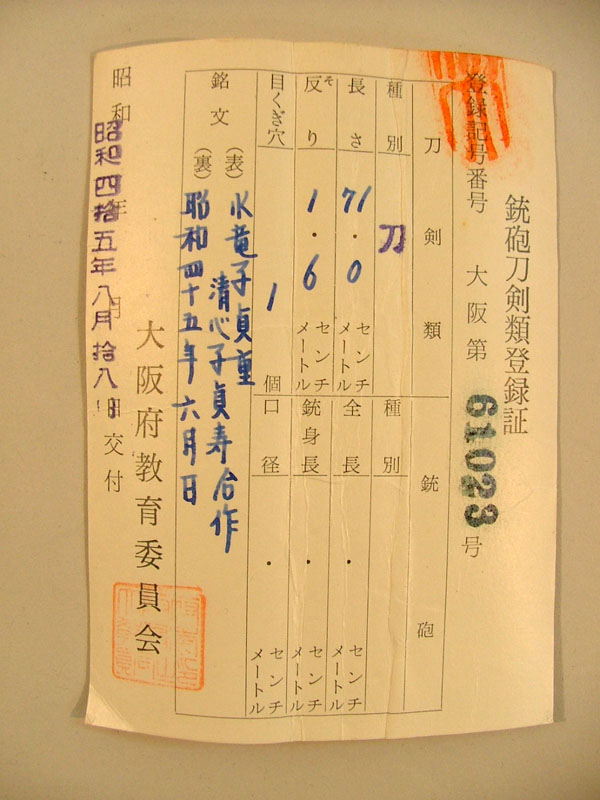 銃砲刀剣類登録証
登録記号番号 大阪第 61023 号
刀剣類 銃砲
種別 刀 種別
長さ 71.0 センチメートル 全長 ・ センチメートル
反り そ 1.6 センチメートル 銃身長 ・ センチメートル
目くぎ穴 1 個 口径 ・ センチメートル
銘文 (表) 水竜子貞重
清心子貞寿合作
(裏) 昭和四十五年六月日
大阪府教育委員会
昭和 年 月 日交付
昭和四拾五年八月拾八